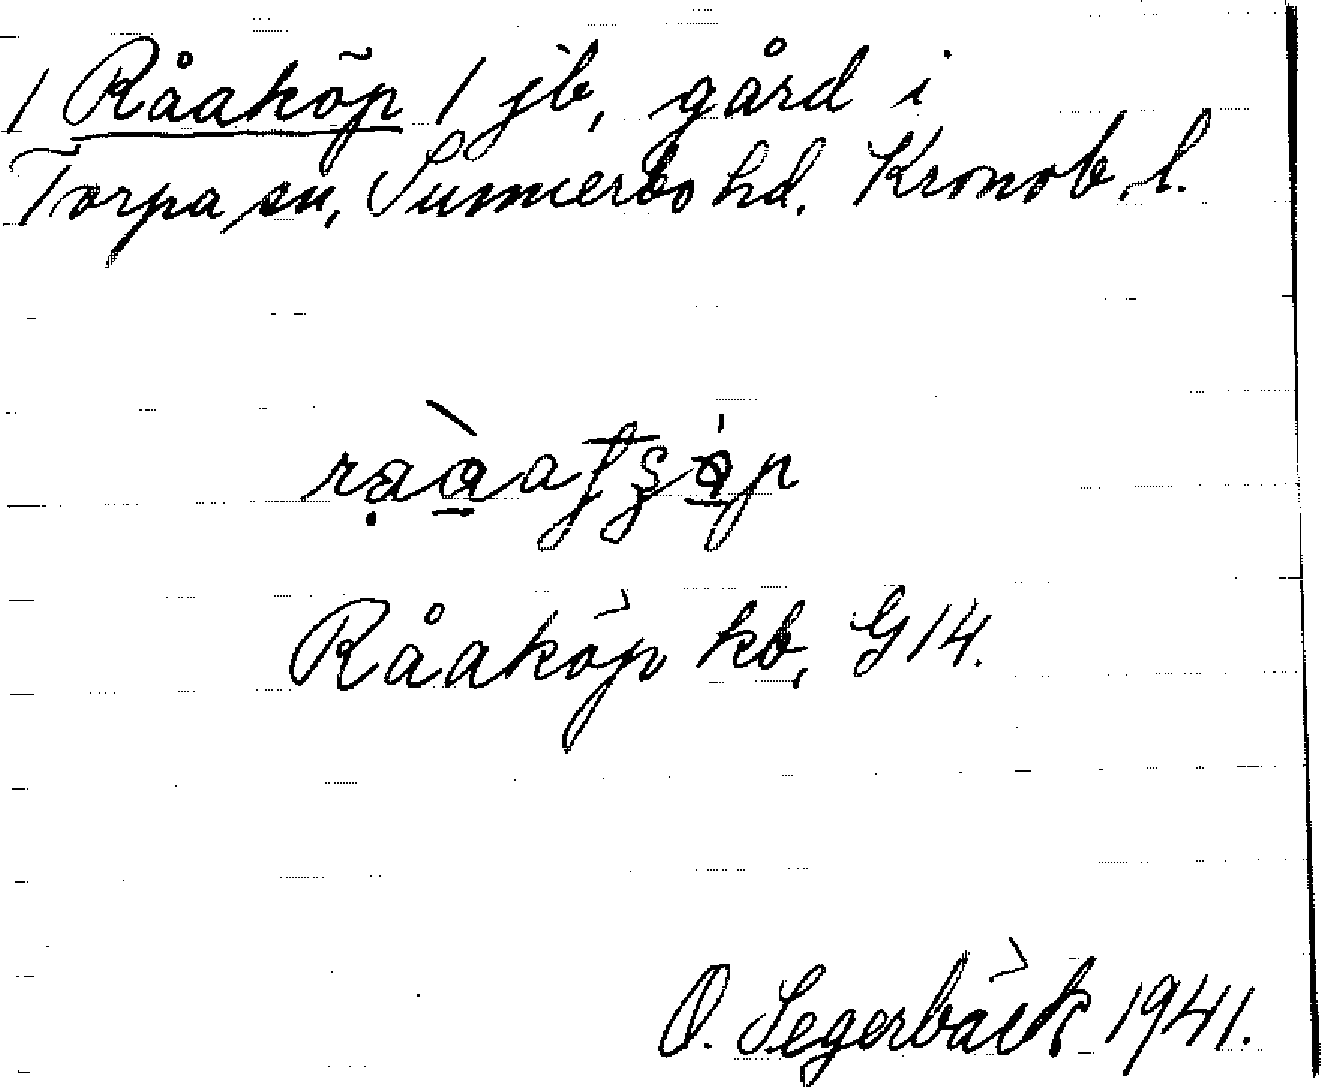 / Råaköp / jb, gård i
Torpa sn, Sunnerbo hd. Kronob. l.
Råaköp kb, G 14.
O. Segerbäck 1941.